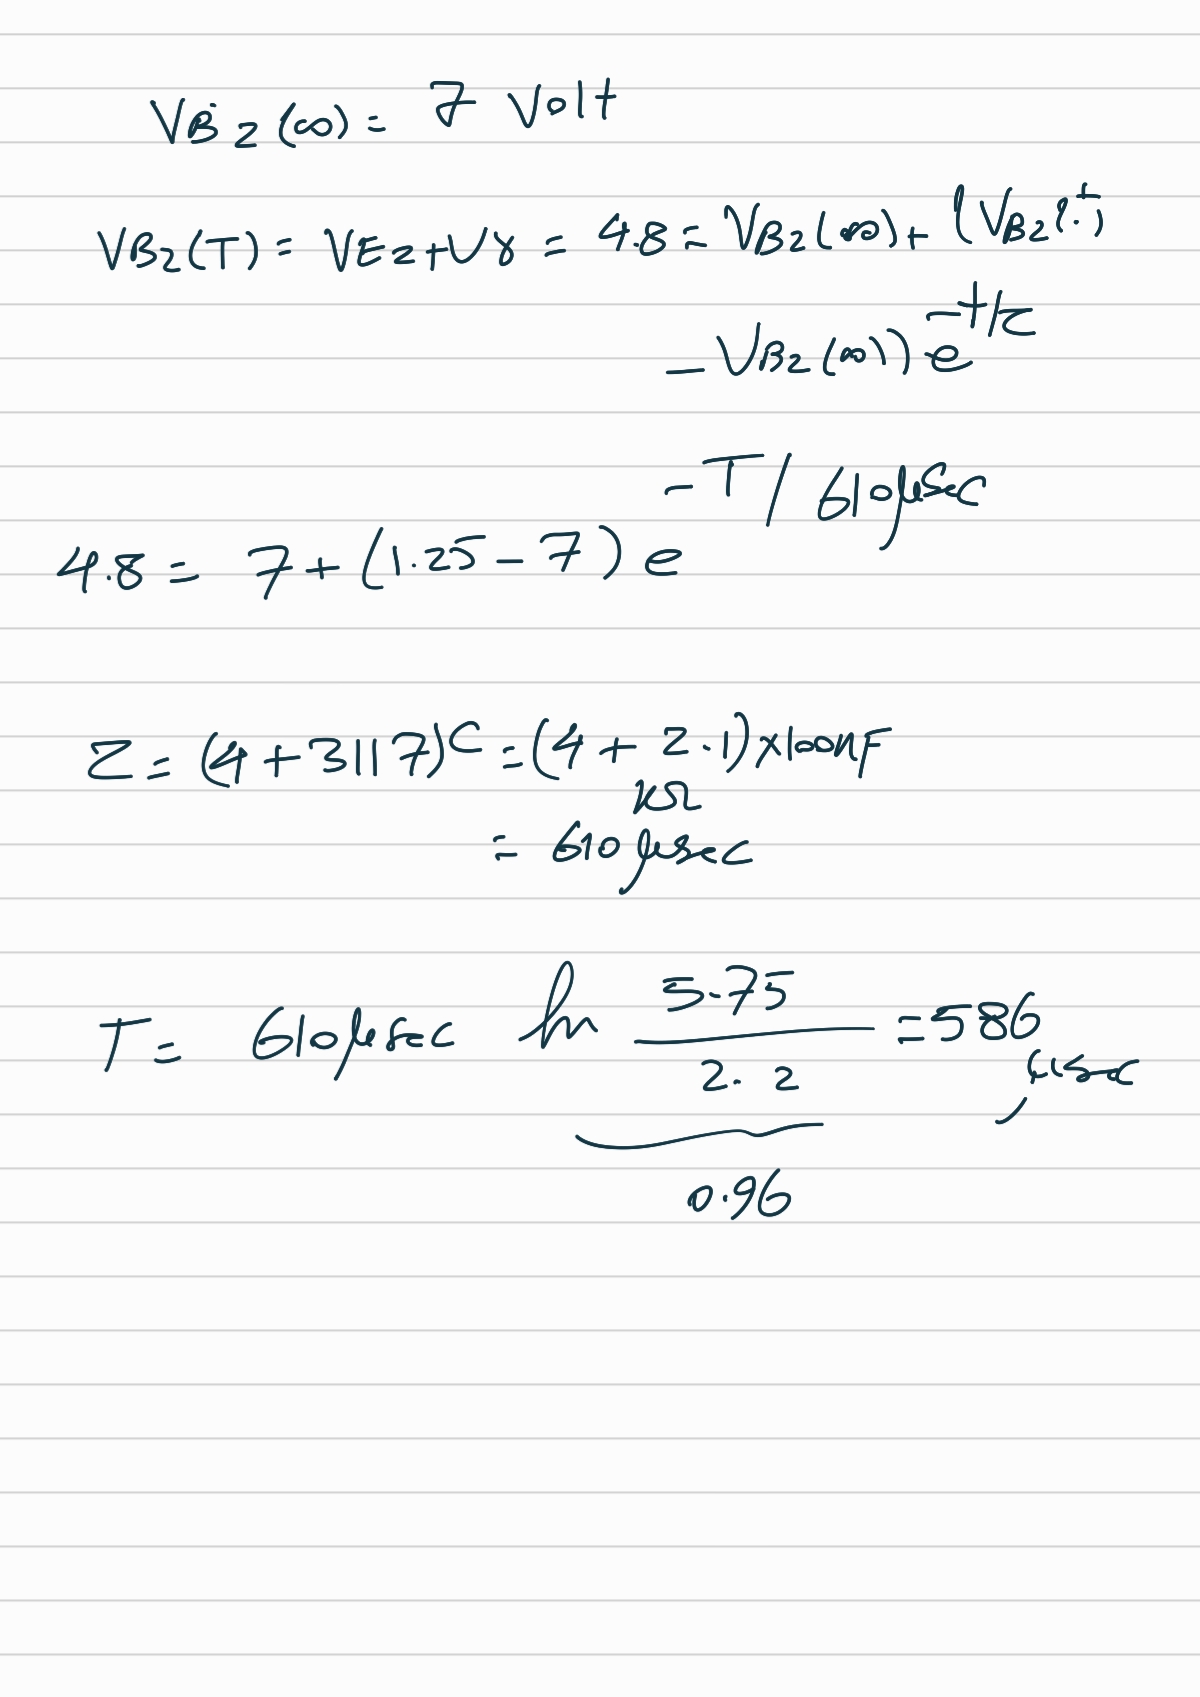 VB2(∞) = 7 Volt
VB2(T) = VE2+Vγ = 4.8 = VB2(∞) + (VB2(0+)
− VB2(∞)) e^−t/τ
4.8 = 7+(1.25−7) e^−T/610μsec
τ = (4+3||7)C = (4 + 2.1)×100nF
kΩ
= 610 μsec
T = 610μsec ln 5.75/2.2 = 586 μsec
0.96